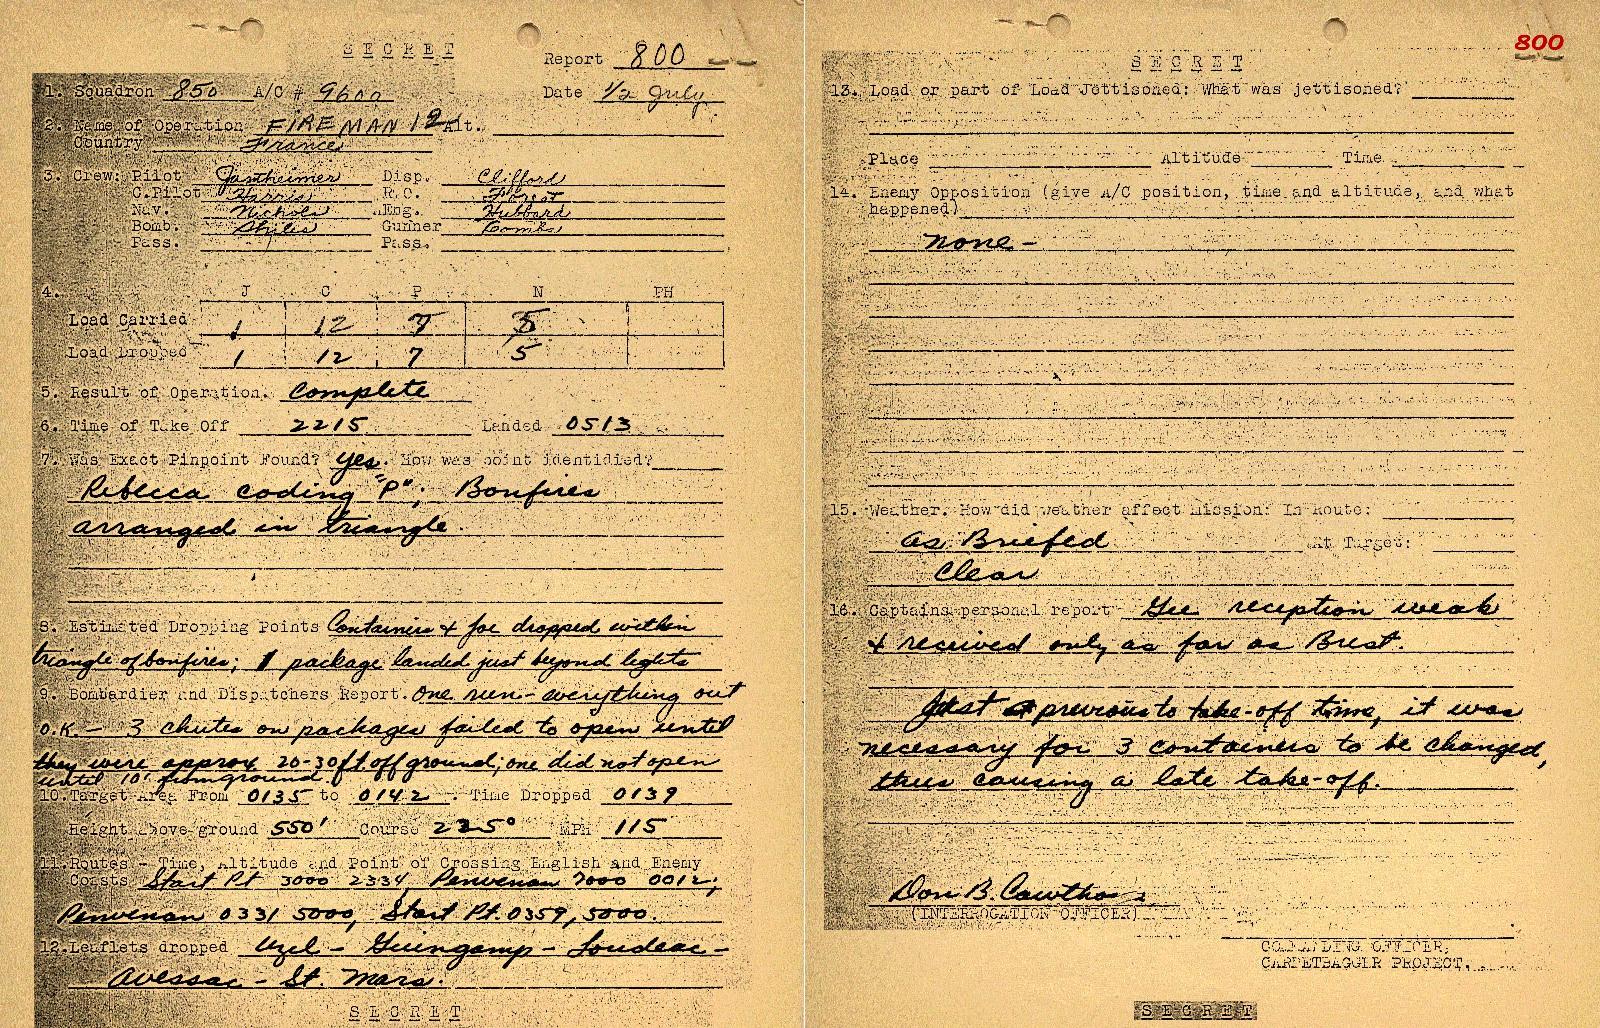 SECRET
Report 800
1. Squadron 850 A/C # 9600 Date 1/2 July
2. Name of Operation FIREMAN 12 Alt.
Country France
3. Crew: Pilot Jastheimer Disp. Clifford
C.Pilot Harris R.O. Forest
Nav. Nichols Eng. Hubbard
Bomb. Stiles Gunner Combs
Pass. Pass.
4. J C P N PH
Load Carried 1 12 7 5
Load Dropped 1 12 7 5
5. Result of Operation. Complete
6. Time of Take Off 2215 Landed 0513
7. Was Exact Pinpoint Found? yes. How was point identidied?
Rebecca coding "P"; Bonfires
arranged in triangle.
8. Estimated Dropping Points Containers & Joe dropped within
triangle of bonfires; 1 package landed just beyond lights
9. Bombardier and Dispatchers Report. One run - everything out
O.K. - 3 chutes on packages failed to open until
they were approx 20-30 ft off ground; one did not open
until 10' from ground.
10. Target Area From 0135 to 0142. Time Dropped 0139
Height Above ground 550' Course 225° MPH 115
11. Routes - Time, Altitude and Point of Crossing English and Enemy
Coasts Start Pt 3000 2334, Penvenan 7000 0012;
Penvenan 0331 5000, Start Pt. 0359, 5000.
12. Leaflets dropped Uzel - Guingamp - Loudeac -
Avessac - St. Mars.
SECRET
800
SECRET
13. Load or part of Load Jettisoned: What was jettisoned?
Place Altitude Time
14. Enemy Opposition (give A/C position, time and altitude, and what
happened)
None -
15. Weather. How did weather affect mission? In Route:
As Briefed At Target:
Clear
16. Captains personal report Gee reception weak
& received only as far as Brest.
Just previous to take-off time, it was
necessary for 3 containers to be changed,
thus causing a late take-off.
Don B. Cawthorn
(INTERROGATION OFFICER)
COMMANDING OFFICER,
CARPETBAGGER PROJECT.
SECRET